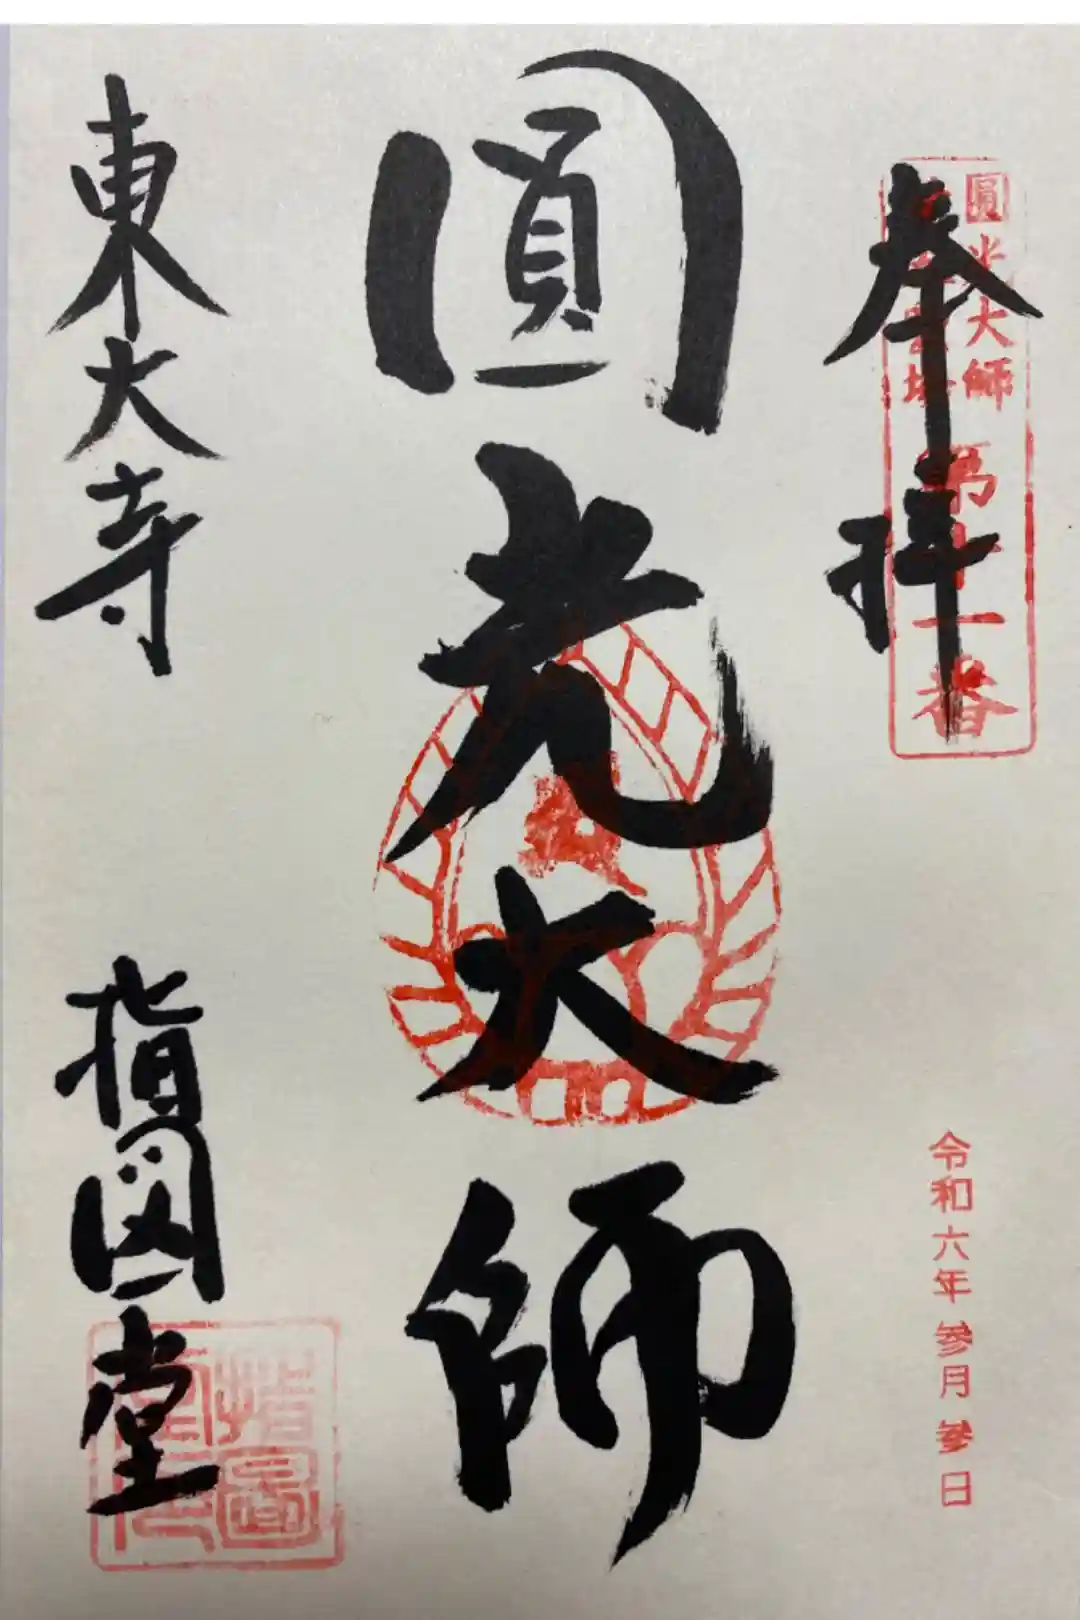 奉拝
圓光大師
第十一番
令和六年参月参日
圓光大師
東大寺
指図堂
指圖堂印